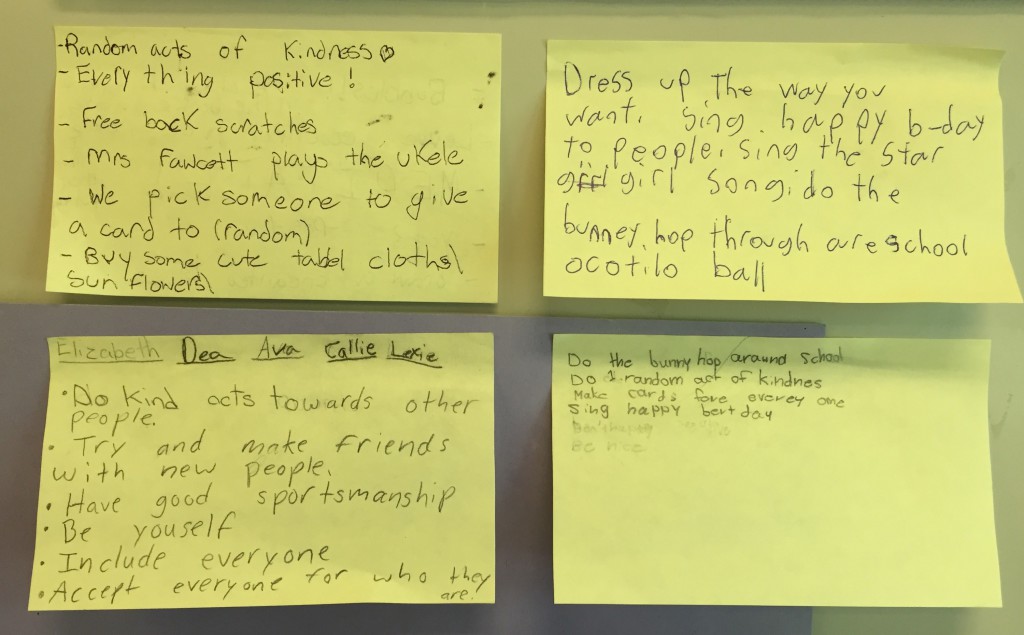 -Random acts of Kindness
- Every thing positive!
- Free back scratches
- Mrs Fawcett plays the ukele
- We pick someone to give
a card to (random)
- Buy some cute tabbel cloths\
sun flowers\
Dress up The way you
want. Sing happy b-day
to people. sing the star
girl song. do the
bunney hop through are school
ocotilo ball
Elizabeth Dea Ava Callie Lexie
• Do Kind acts towards other
people.
• Try and make friends
with new people.
• Have good sportsmanship
• Be youself
• Include everyone
• Accept everyone for who they
are!
Do the bunny hop around School
Do 1 random act of kindnes
Make cards fore everey one
Sing happy bert day
Be nice